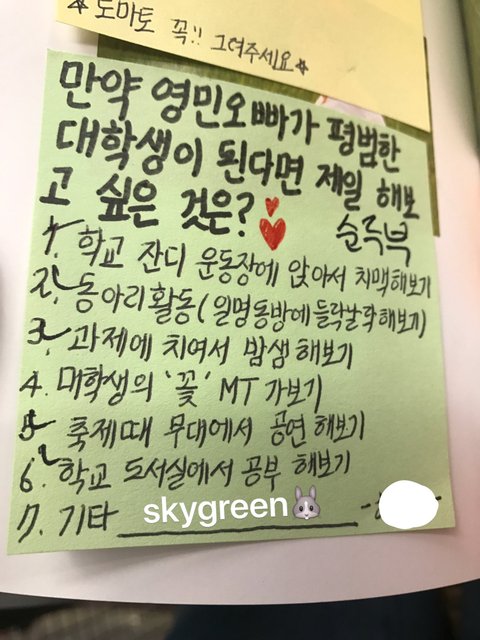 ☆ 도마토 꼭!! 그려주세요☆
만약 영민오빠가 평범한
대학생이 된다면 제일 해보
고 싶은 것은? 순륵북
1. 학교 잔디 운동장에 앉아서 치맥해보기
2. 동아리활동(일명동방에들락날락해보기)
3. 과제에 치여서 밤샘 해보기
4. 대학생의 '꽃' MT 가보기
5. 축제때 무대에서 공연해보기
6. 학교 도서실에서 공부 해보기
7. 기타
skygreen